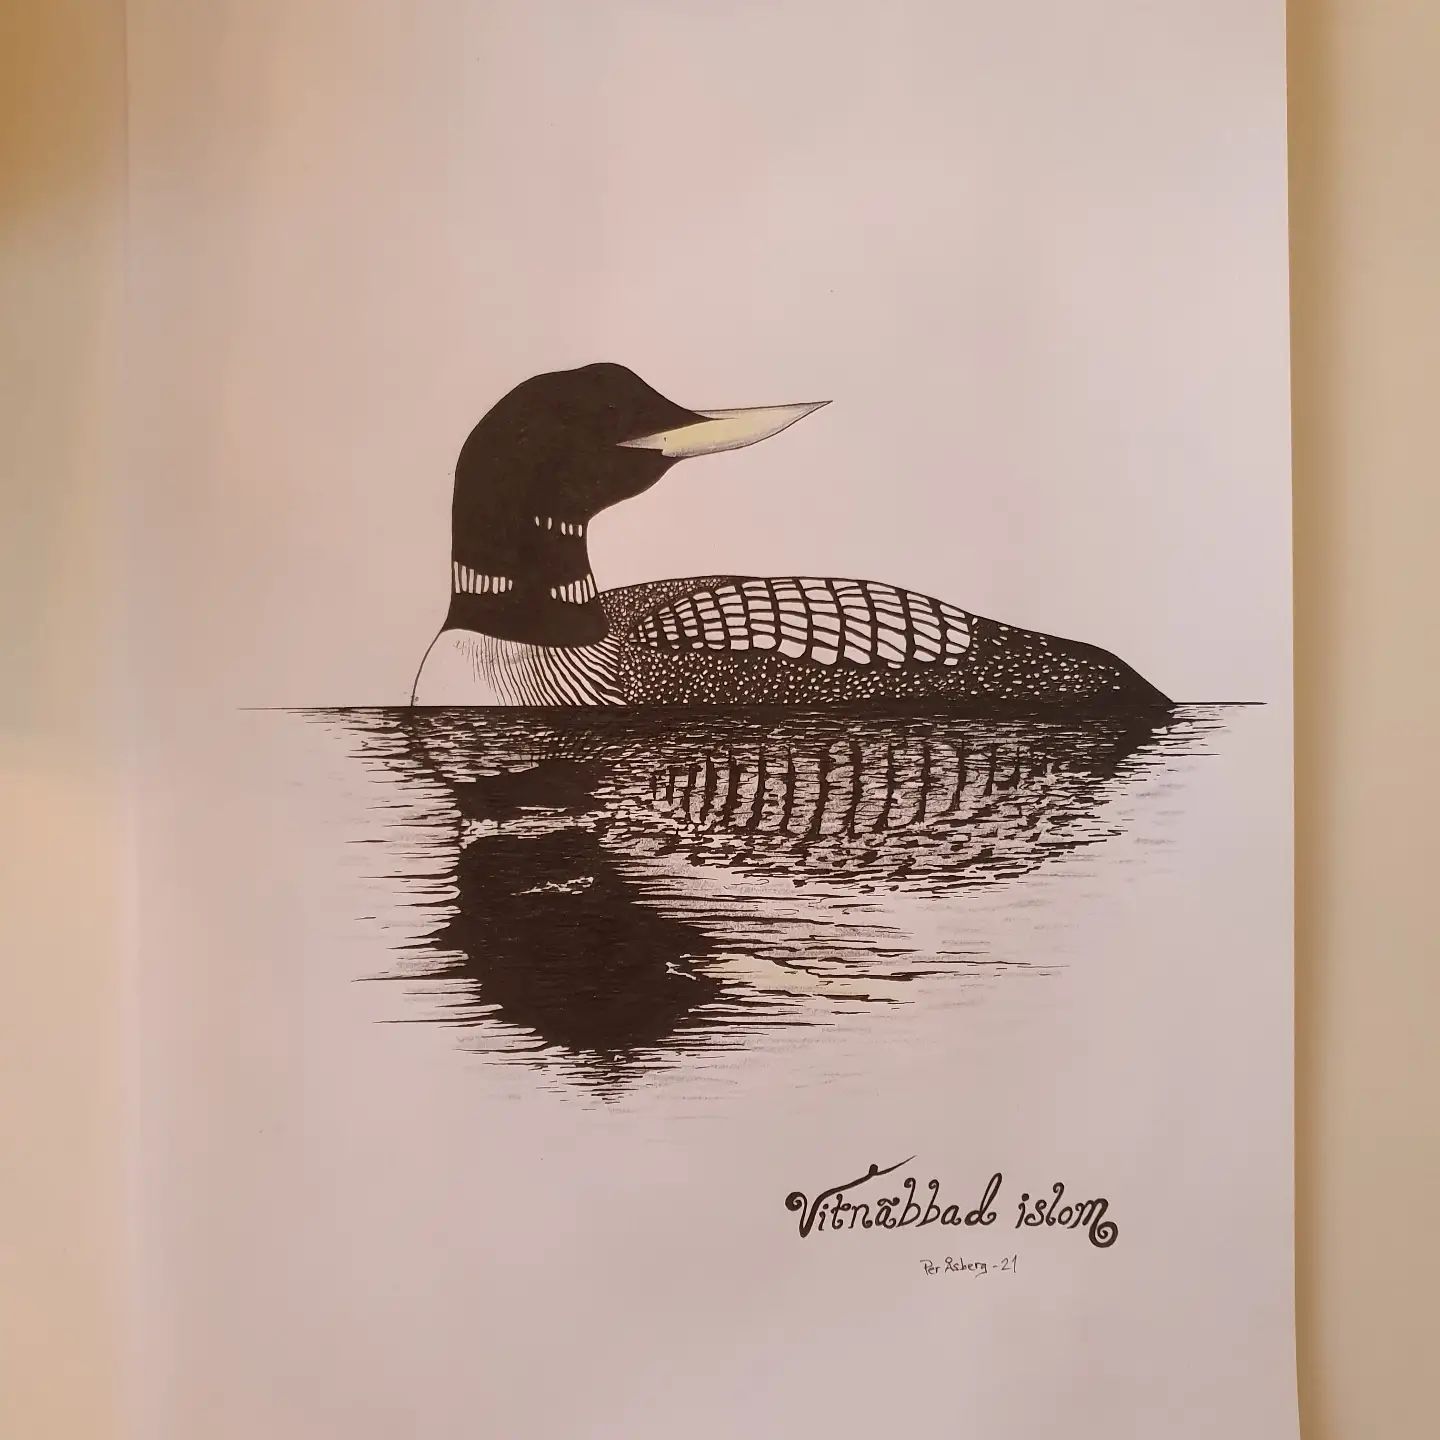 Vitnäbbad islom
Per Åsberg - 21